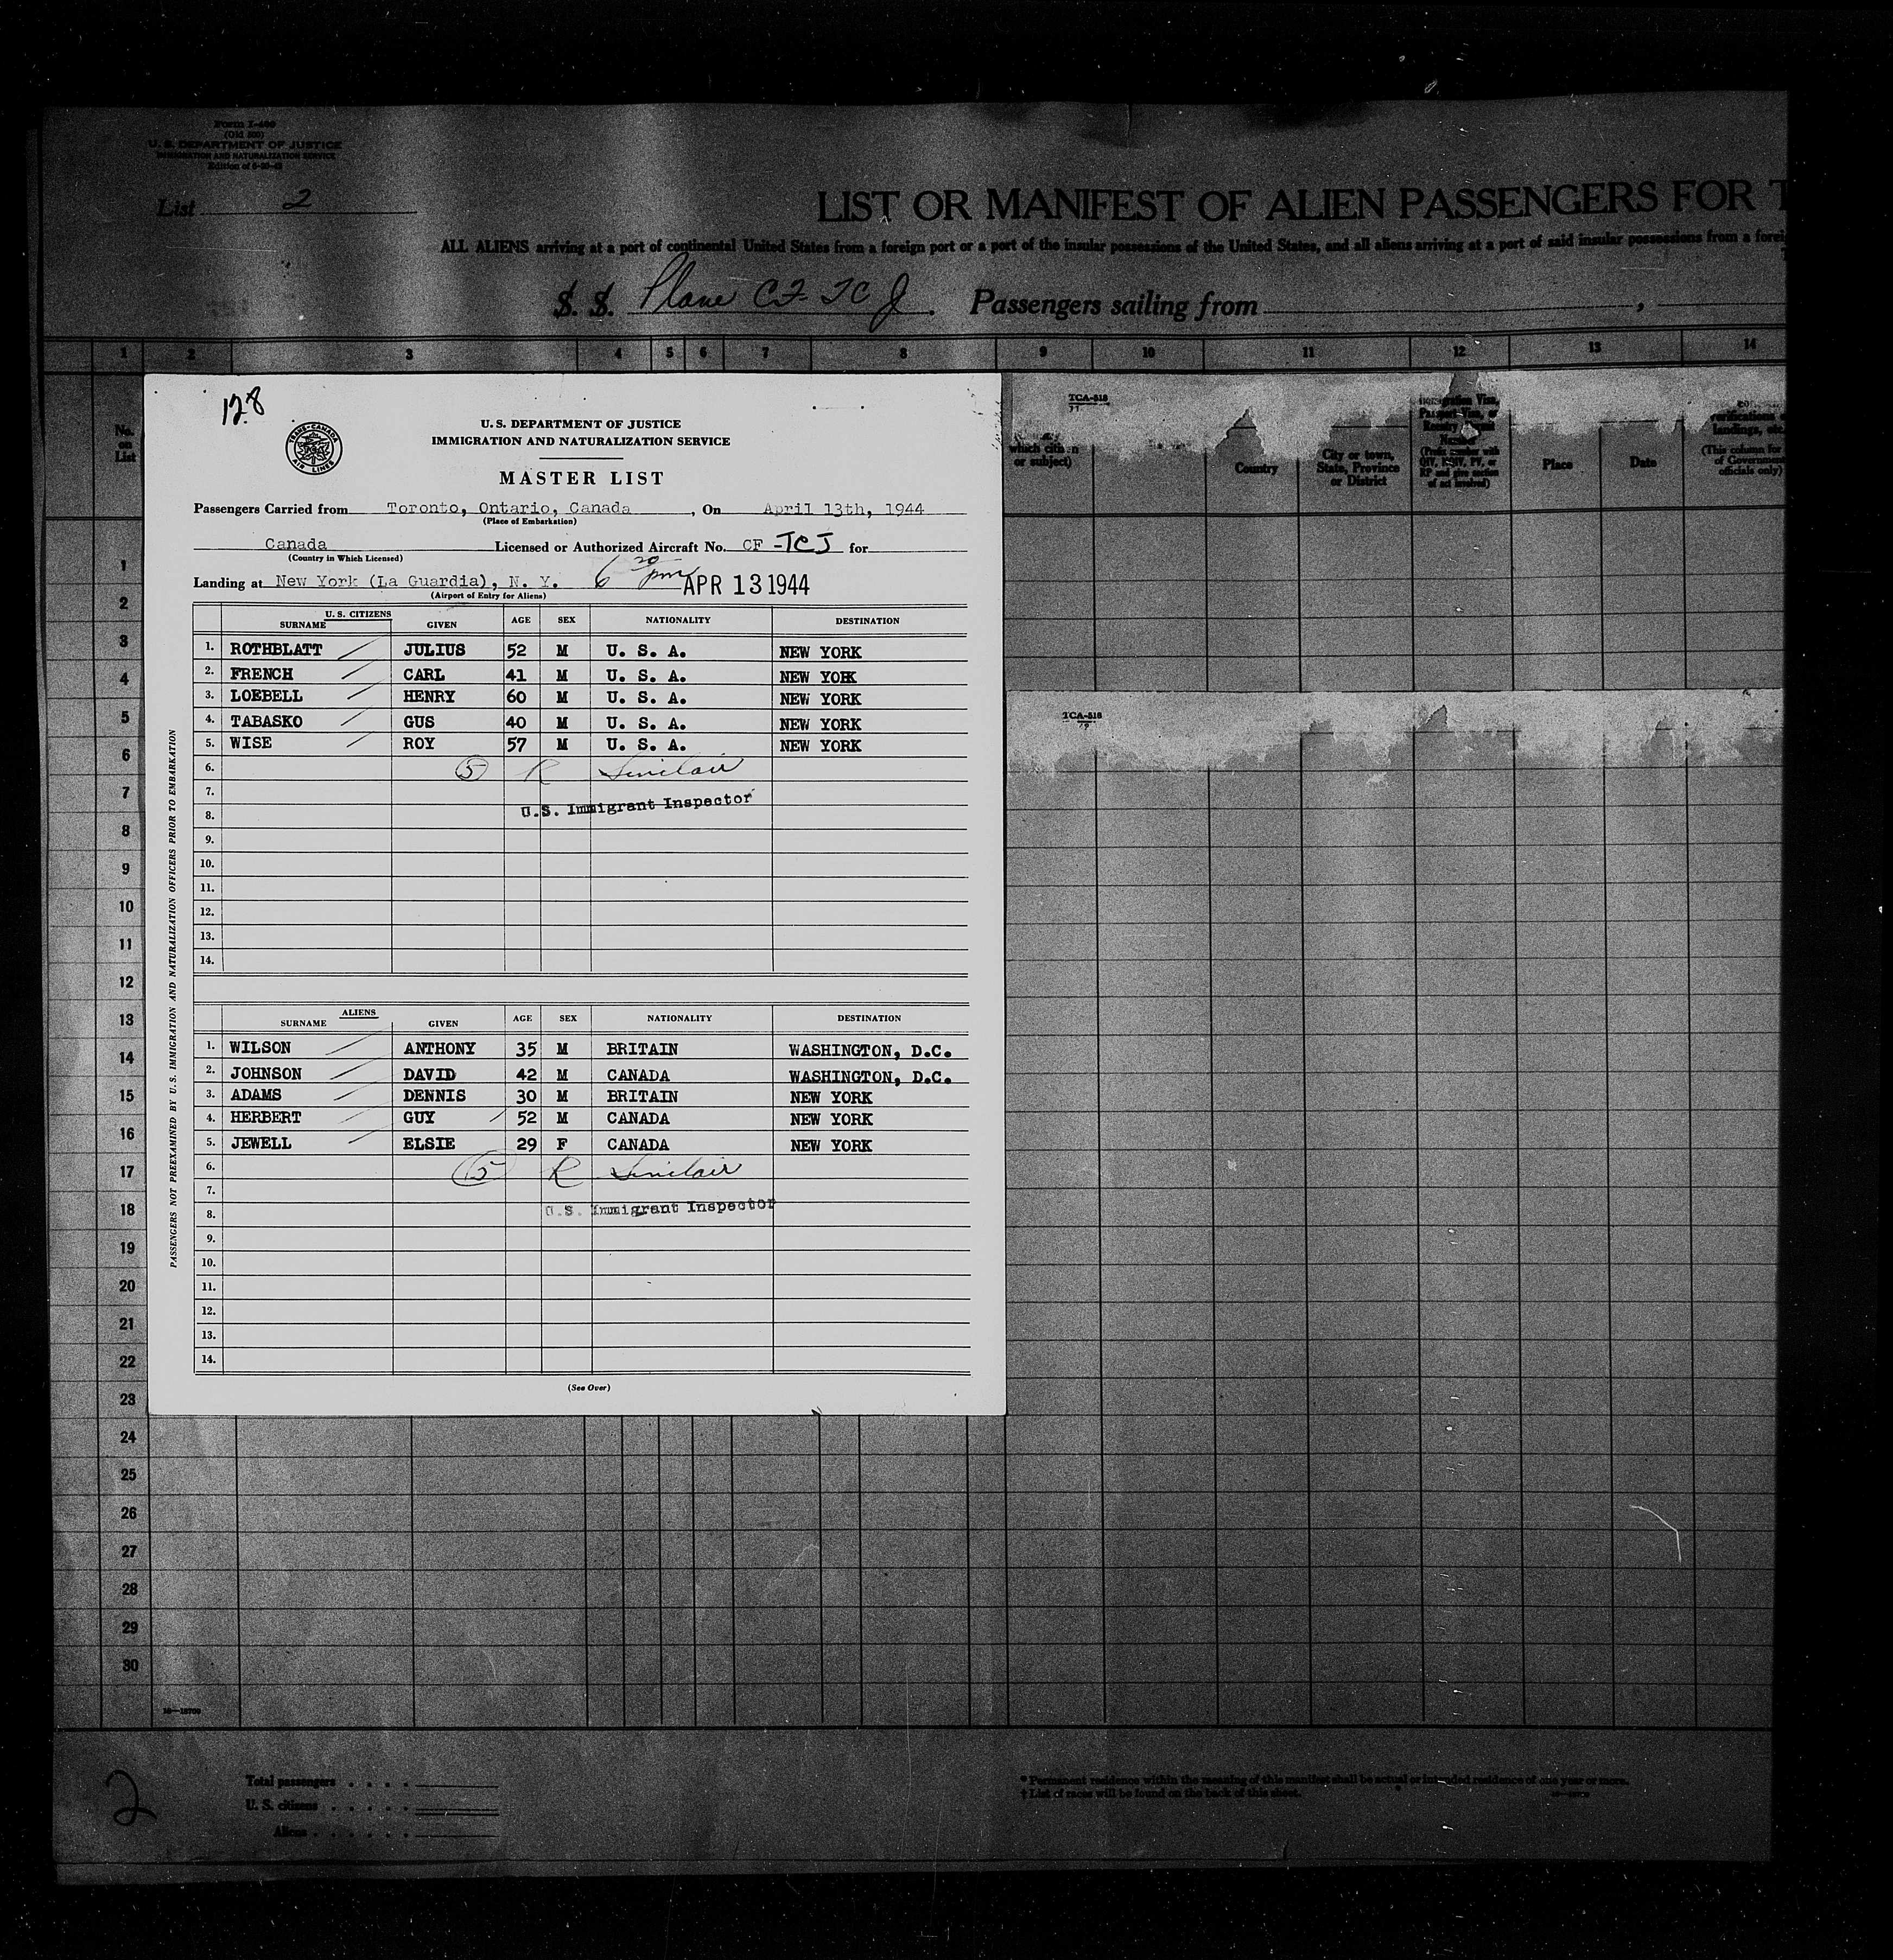 Form I-400
(Old 500)
U. S. DEPARTMENT OF JUSTICE
IMMIGRATION AND NATURALIZATION SERVICE
List 2
LIST OR MANIFEST OF ALIEN PASSENGERS FOR T
ALL ALIENS arriving at a port of continental United States from a foreign port or a port of the insular possessions of the United States, and all aliens arriving at a port of said insular possessions from a forei
S. S. Plane CF-TCJ. Passengers sailing from ,
1 2 3 4 5 6 7 8 9 10 11 12 13 14
128
TRANS-CANADA AIR LINES
U. S. DEPARTMENT OF JUSTICE
IMMIGRATION AND NATURALIZATION SERVICE
MASTER LIST
Passengers Carried from Toronto, Ontario, Canada, On April 13th, 1944
(Place of Embarkation)
Canada Licensed or Authorized Aircraft No. CF -TCJ for
(Country in Which Licensed)
Landing at New York (La Guardia), N. Y. 6 20 pm APR 13 1944
(Airport of Entry for Aliens)
U. S. CITIZENS
SURNAME GIVEN AGE SEX NATIONALITY DESTINATION
1. ROTHBLATT JULIUS 52 M U. S. A. NEW YORK
2. FRENCH CARL 41 M U. S. A. NEW YORK
3. LOEBELL HENRY 60 M U. S. A. NEW YORK
4. TABASKO GUS 40 M U. S. A. NEW YORK
5. WISE ROY 57 M U. S. A. NEW YORK
6. 5 R Sinclair
7.
8. U.S. Immigrant Inspector
9.
10.
11.
12.
13.
14.
ALIENS
SURNAME GIVEN AGE SEX NATIONALITY DESTINATION
1. WILSON ANTHONY 35 M BRITAIN WASHINGTON, D.C.
2. JOHNSON DAVID 42 M CANADA WASHINGTON, D.C.
3. ADAMS DENNIS 30 M BRITAIN NEW YORK
4. HERBERT GUY 52 M CANADA NEW YORK
5. JEWELL ELSIE 29 F CANADA NEW YORK
6. 5 R Sinclair
7.
8. U.S. Immigrant Inspector
9.
10.
11.
12.
13.
14.
(See Over)
PASSENGERS NOT PREEXAMINED BY U.S. IMMIGRATION AND NATURALIZATION OFFICERS PRIOR TO EMBARKATION
No.
on
List
1
2
3
4
5
6
7
8
9
10
11
12
13
14
15
16
17
18
19
20
21
22
23
24
25
26
27
28
29
30
TCA-518
or subject)
Country
City or town,
State, Province
or District
Place
Date
landings, etc.
(This column for
of Government
officials only)
TCA-518
2
Total passengers
U. S. citizens
Aliens
* Permanent residence within the meaning of this manifest shall be actual or intended residence of one year or more.
† List of races will be found on the back of this sheet.